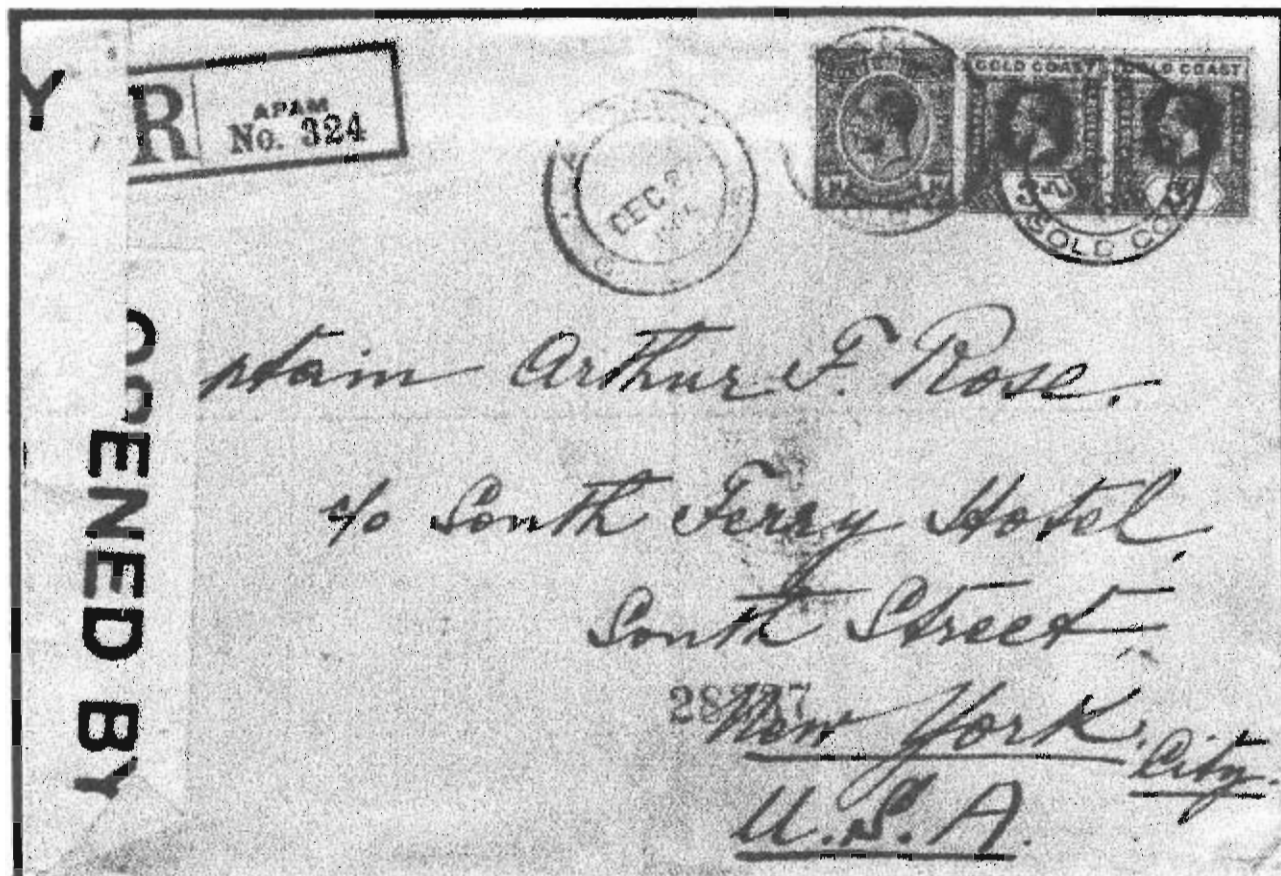 Y
R APAM
No. 324
DEC
GOLD COAST GOLD COAST
GOLD CO
OPENED BY
ptain Arthur F. Rose.
c/o South Ferry Hotel,
South Street
New York. City.
U.S.A.